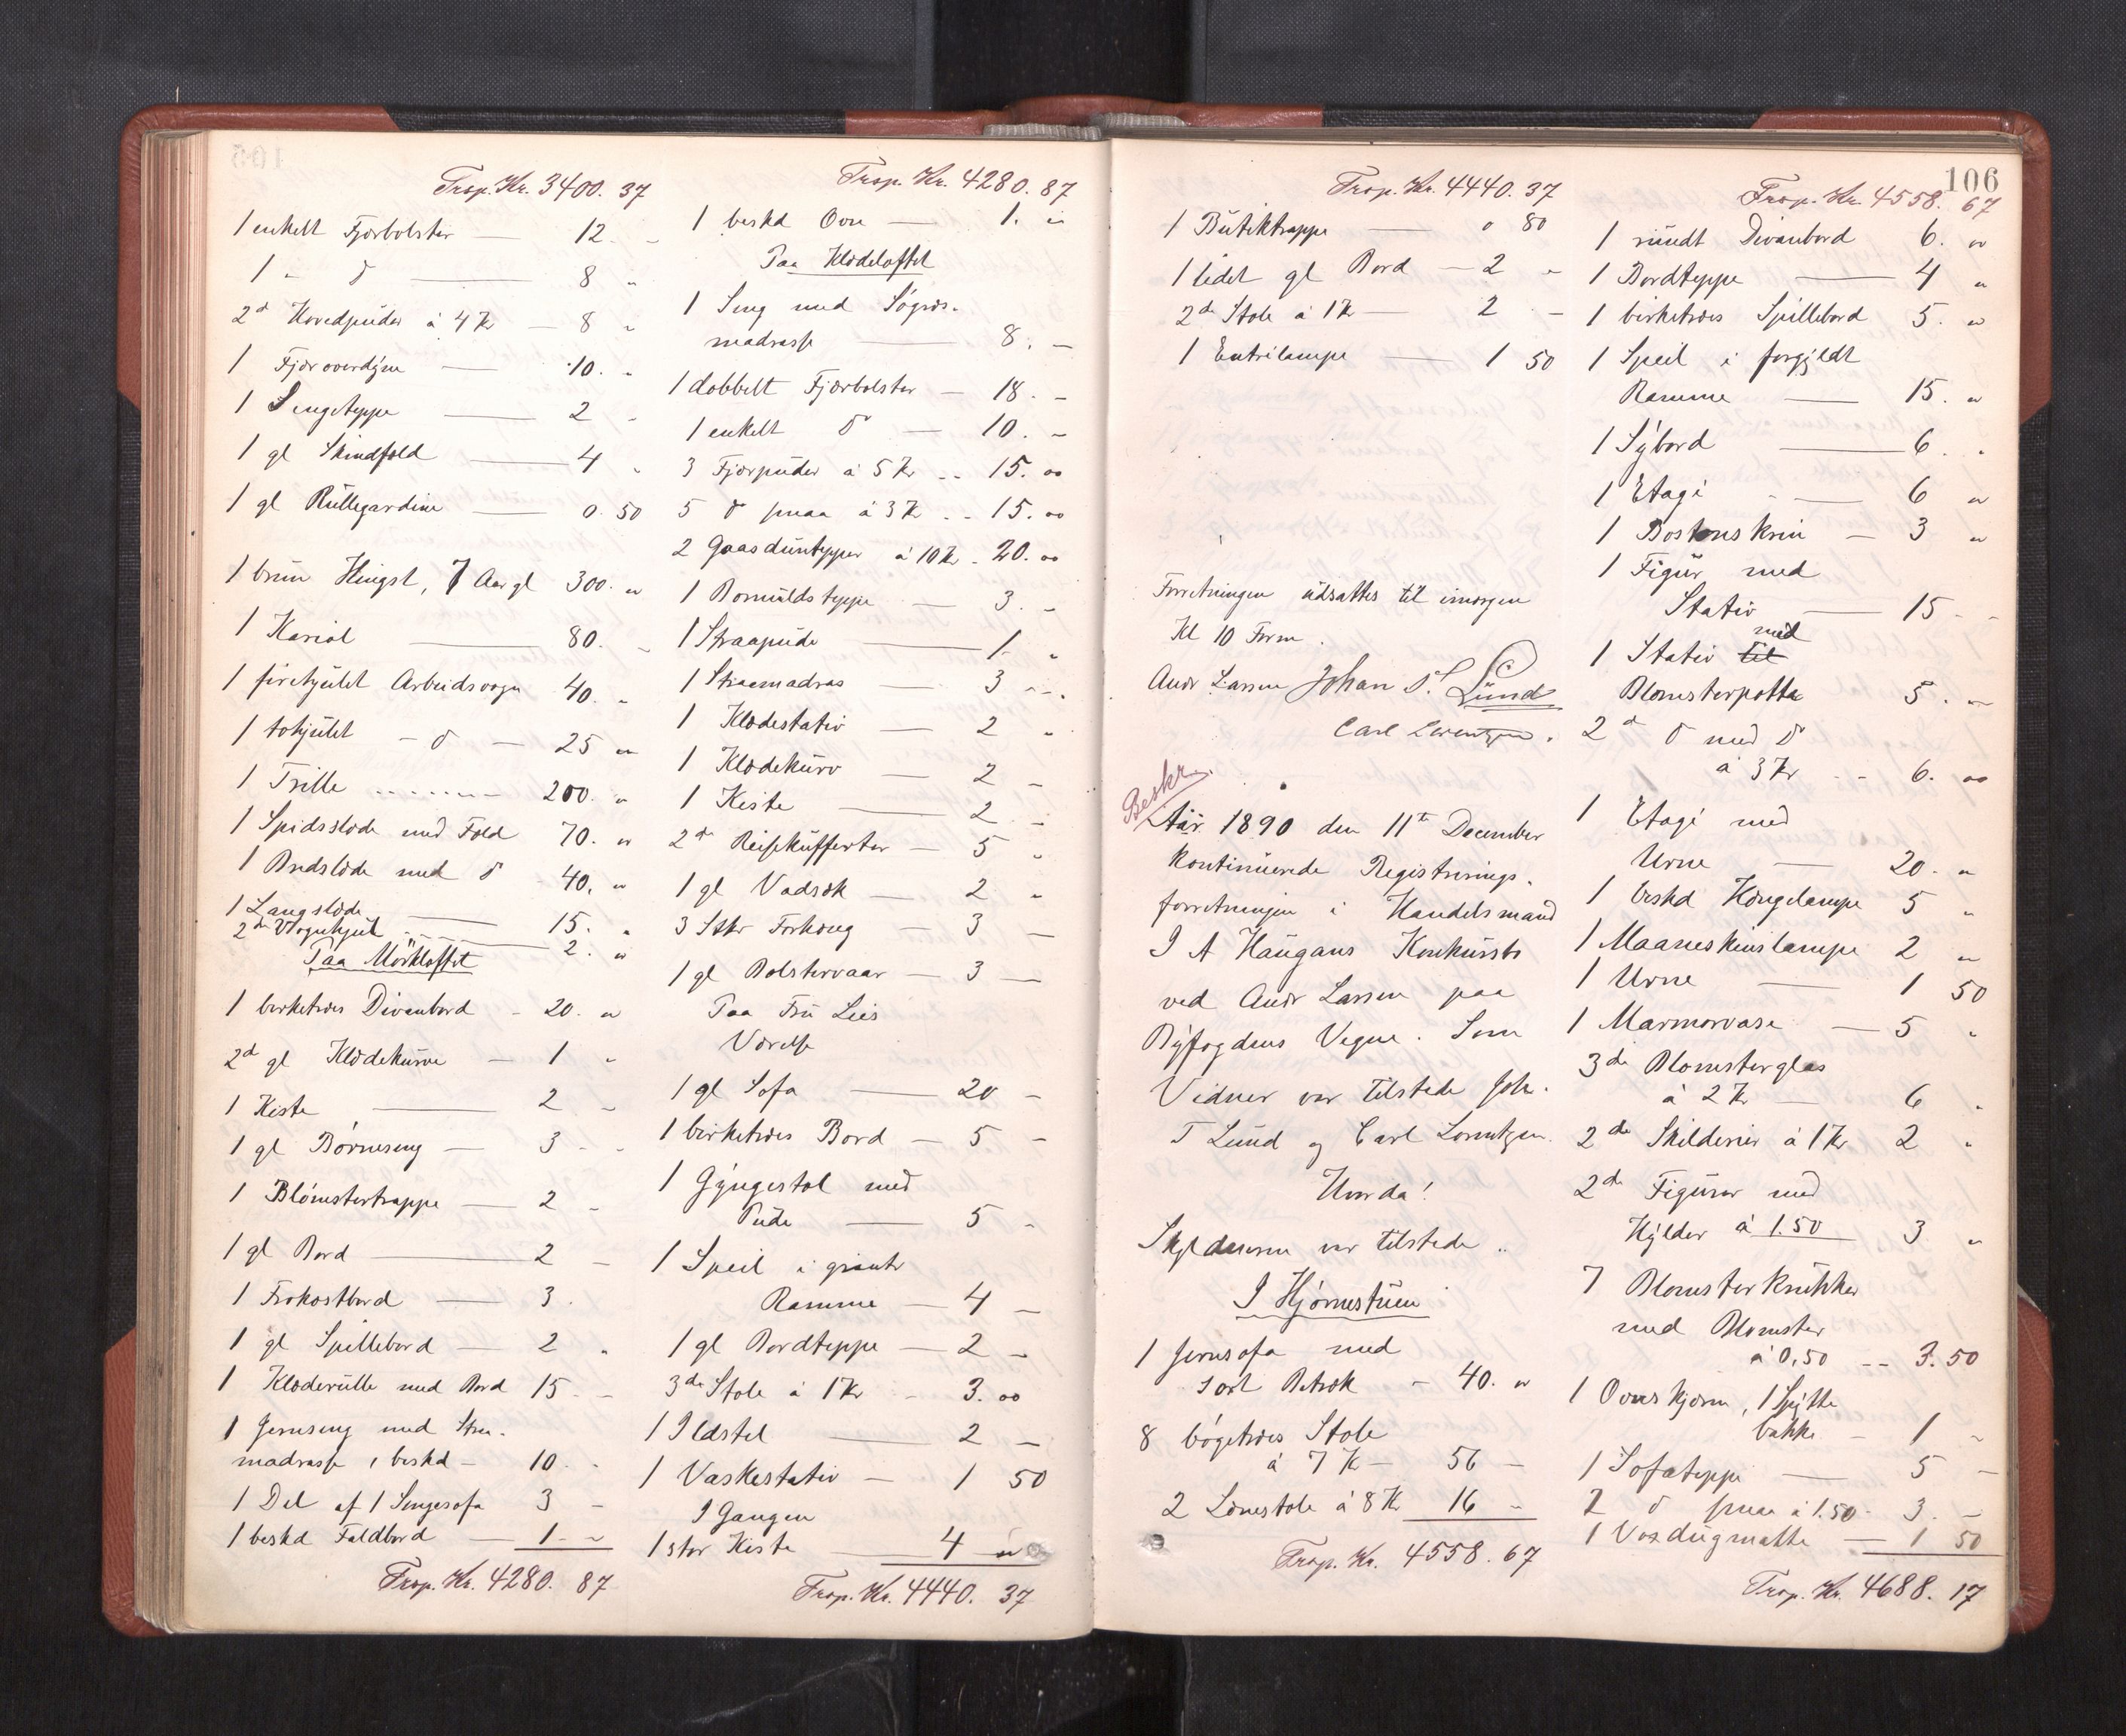 Trsp. Kr. 3400. 37
1 enkelt Fjærbolster — 12. "
1 " do — 8 "
2d Hovedpuder á 4 Kr — 8 "
1 Fjæroverdyne — 10. "
1 Sengeteppe — 2 "
1 gl Skindfeld — 4 "
1 gl Rullegardine — 0. 50
1 brun Hingst, 7 Aar gl 300. "
1 Kariol — 80. "
1 firehjulet Arbeidsvogn 40. "
1 tohjulet - do - 25 "
1 Trille ....... 200. "
1 Spidsslæde med Feld 70. "
1 Bredslæde med do - 40. "
1 Langslæde — 15. "
2de Vognhjul — 2. "
Paa Mørkloftet
1 birketræs Divanbord - 20. "
2d gl Klædekurve — 1 "
1 Kiste — 2 "
1 gl Børneseng — 3 "
1 Blomstertrappe — 2 "
1 gl Bord — 2 "
1 Frokostbord — 3.
1 gl Spillebord — 2 "
1 Klæderulle med Bord 15 "
1 Jernseng med Straa-
madrasse, beskd - 10. "
1 Del af 1 Sengesofa 3 "
1 beskd Faldbord — 1 "
Trsp. Kr. 4280. 87
Trsp. Kr. 4280. 87
1 beskd Ovn — 1. "
Paa Klædeloftet
1 Seng med Søgræs-
madrasse — 8. "
1 dobbelt Fjærbolster — 18. "
1 enkelt do — 10. "
3 Fjærpuder á 5 Kr .. 15. 00
5 do smaa á 3 Kr .. 15. 00
2 Gaasduntepper á 10 Kr . 20. 00
1 Bomuldsteppe — 3. "
1 Straapude — 1 "
1 Straamadras — 3 "
1 Klædestativ — 2 "
1 Klædekurv — 2 "
1 Kiste — 2 "
2de Reisekufferter — 5 "
1 gl Vadsæk — 2 "
3 Stkr Forhæng — 3 —
1 gl Bolstervaar — 3 —
Paa Fru Lies
Værelse
1 gl Sofa — 20 "
1 birketræs Bord — 5 "
1 Gyngestol med
Pude — 5 "
1 Speil i
Ramme — 4 —
1 gl Bordteppe — 2 "
3de Stole á 1 Kr - 3. 00
1 Ildstel — 2 —
1 Vaskestativ — 1 50
I Gangen
1 stor Kiste — 4 "
Trsp. Kr. 4440. 37
106
Trsp. Kr. 4440. 37
1 Butiktrappe — 0 80
1 lidet gl Bord — 2 "
2de Stole á 1 Kr — 2 "
1 Entrélampe — 1 50
Forretningen udsattes til imorgen
Kl 10 Form.
Andr Larsen Johan T. Lund
Carl Lorentzen.
Beskr.
Aar 1890 den 11te December
kontinuerede Registrerings-
forretningen i Handelsmand
I A Haugans Konkursbo
ved Andr Larsen paa
Byfogdens Vegne. Som
Vidner var tilstede Joh.
T Lund og Carl Lorentzen.
Hvorda!
Skyldneren var tilstede ..
I Hjørnestuen
1 Jernsofa med
sort Betræk — 40. "
8 bøgetræs Stole
á 7 Kr — 56 "
2 Lænestole á 8 Kr 16 "
Trsp. Kr. 4558. 67
Trsp. Kr. 4558. 67
1 rundt Divanbord 6. 00
1 Bordteppe — 4 "
1 birketræs Spillebord 5. "
1 Speil i forgyldt
Ramme — 15. "
1 Sybord — 6. "
1 Etagé — 6 "
1 Bostonskrin — 3 "
1 Figur med
Stativ — 15 "
med
1 Stativ til
Blomsterpotte 5. "
2d do med do
á 3 Kr - - 6. 00
1 Etagé med
Urne — 20. "
1 beskd Hængelampe 5 "
1 Maaneskinslampe 2 "
1 Urne — 1 50
1 Marmorvase — 5 "
3de Blomsterglas
á 2 Kr — 6 "
2de Skilderier á 1 Kr 2 "
2de Figurer med
Hylder á 1.50 3 "
7 Blomsterkrukker
med Blomster
á 0,50 -- 3. 50
1 Ovnskjærm, 1 Spytte
bakke — 1 "
1 Sofateppe — 5 —
2 do smaa á 1.50 3. —
1 Voxdugmatte — 1 50
Trsp. Kr. 4688. 17